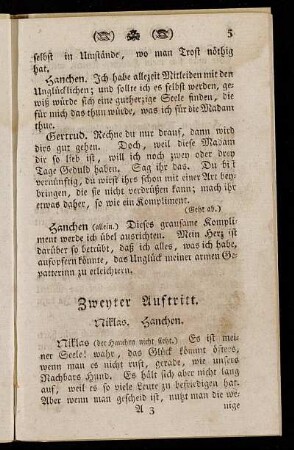 5
selbst in Umstände, wo man Trost nöthig
hat.
Hanchen. Ich habe allezeit Mitleiden mit den
Unglücklichen; und sollte ich es selbst werden, ge-
wiß würde sich eine gutherzige Seele finden, die
für mich das thun würde, was ich für die Madam
thue.
Gertrud. Rechne du nur drauf, dann wird
dirs gut gehen. Doch, weil diese Madam
dir so lieb ist, will ich noch zwey oder drey
Tage Geduld haben. Sag ihr das. Du bist
vernünftig, du wirst ihrs schon mit einer Art bey-
bringen, die sie nicht verdrüßen kann; mach ihr
etwas daher, so wie ein Kompliment.
(Geht ab.)
Hanchen (allein.) Dieses grausame Kompli-
ment werde ich übel ausrichten. Mein Herz ist
darüber so betrübt, daß ich alles, was ich habe,
aufopfern könnte, das Unglück meiner armen Ge-
vatterinn zu erleichtern.
Zweyter Auftritt.
Niklas. Hanchen.
Niklas (der Hanchen nicht sieht.) Es ist mei-
ner Seele! wahr, das Glück kömmt öfters,
wenn man es nicht ruft, gerade, wie unsers
Nachbars Hund. Es hält sich aber nicht lang
auf, weil es so viel Leute zu befriedigen hat.
Aber wenn man gescheid ist, nutzt man die we-
A 3 nige